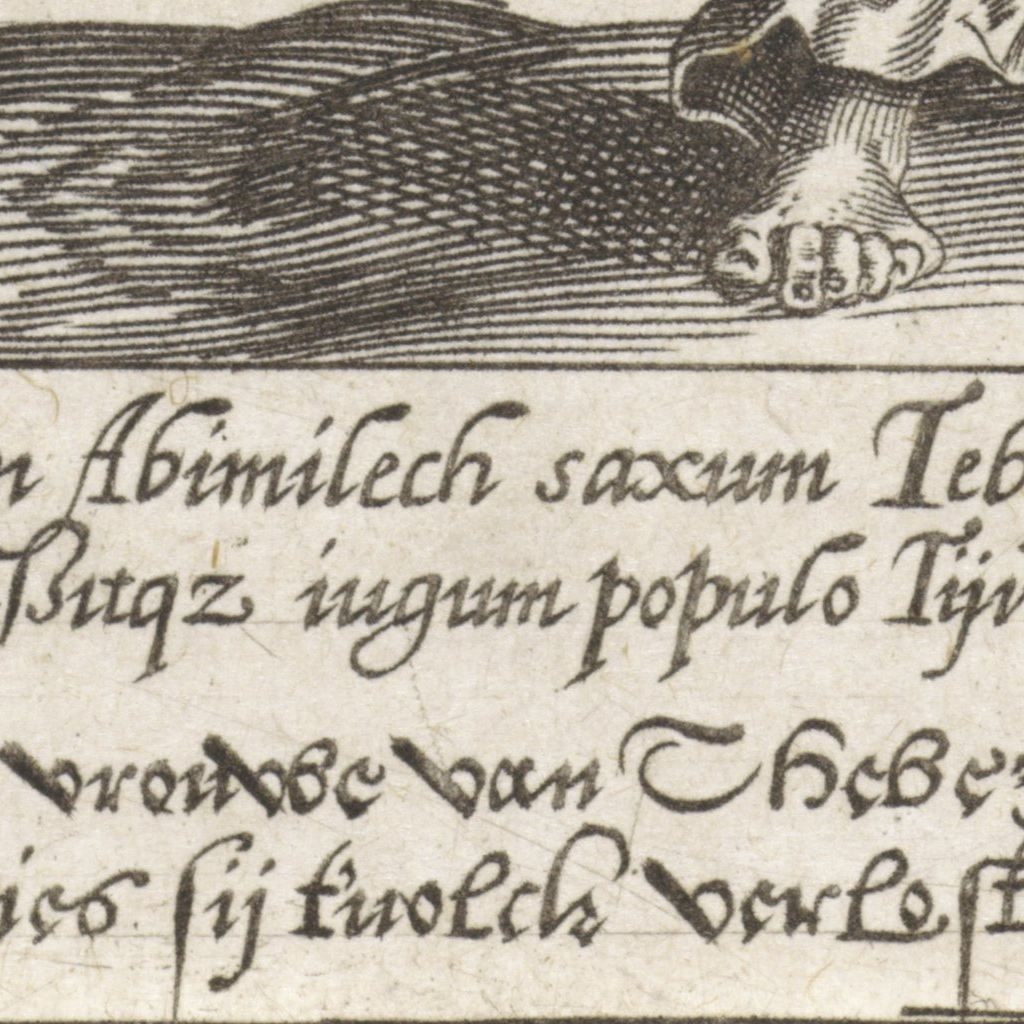 n Abimilech saxum Teb
Bitqz iugum populo Tijr
vrouwe van Thebez
ies sij t'uolck verlost